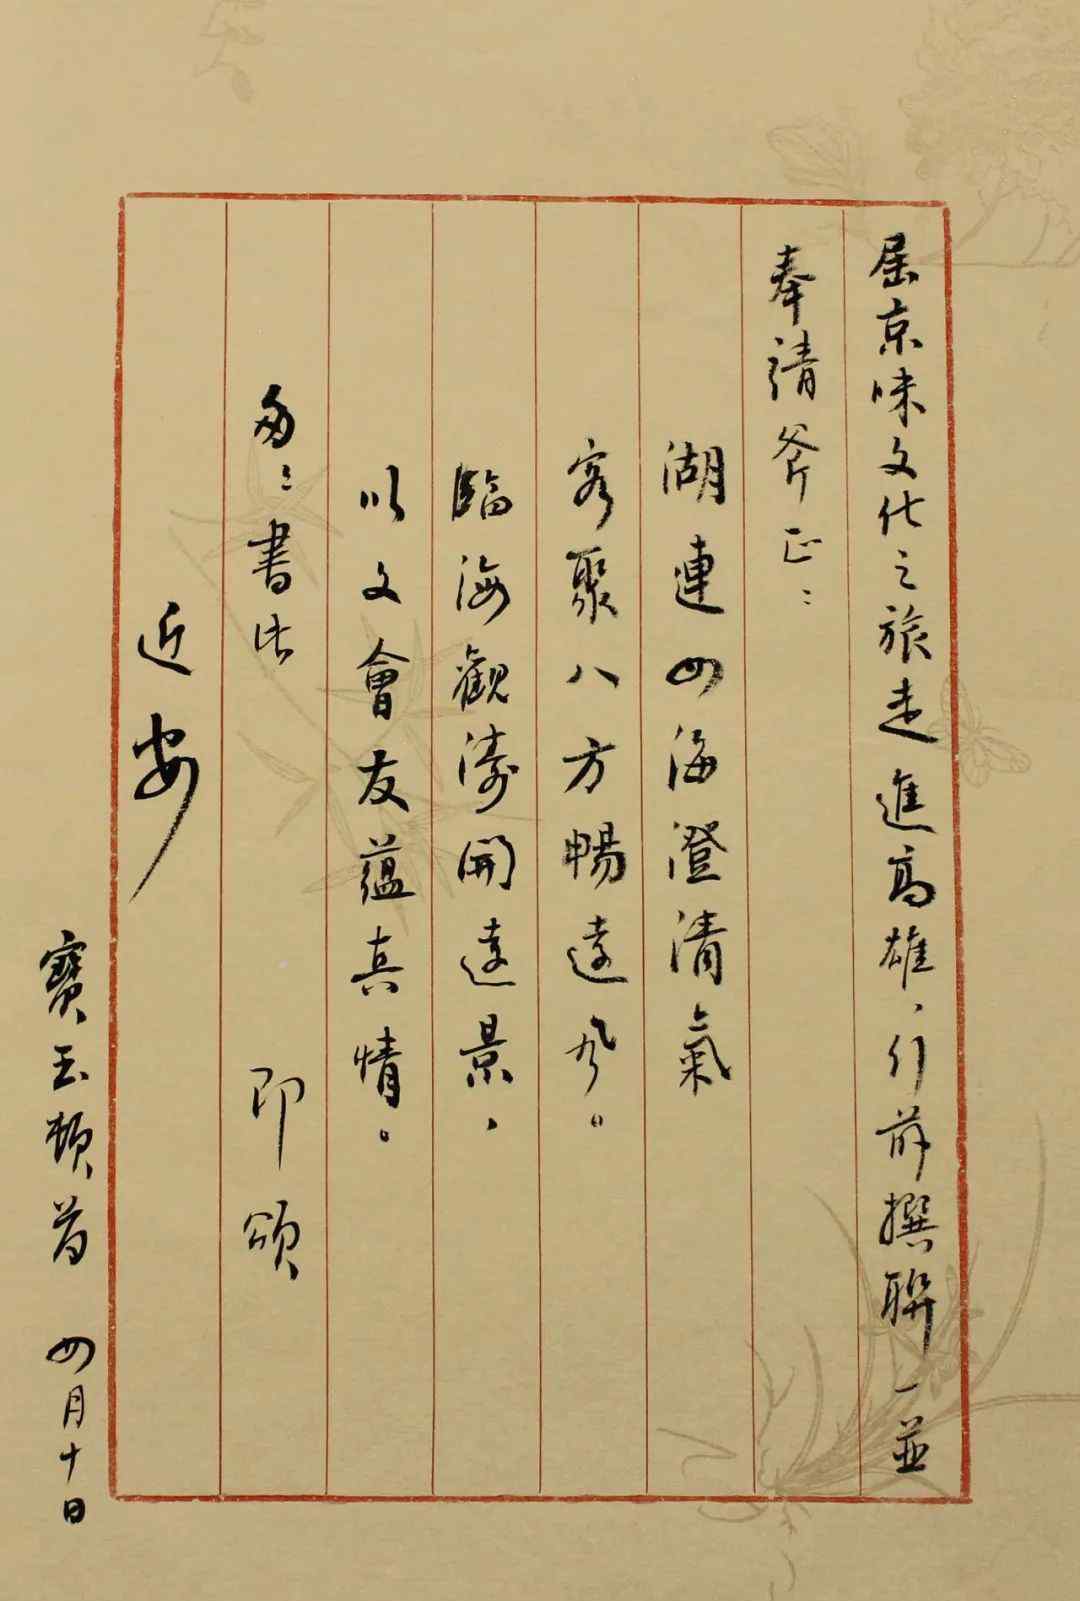 屆京味文化之旅走進高雄，行前撰聯一並
奉請斧正：
湖連四海澄清氣
客聚八方暢遠風。
臨海觀濤開遠景，
以文會友蘊真情。
匆匆書此　即頌
近安
寶玉頓首　四月十日